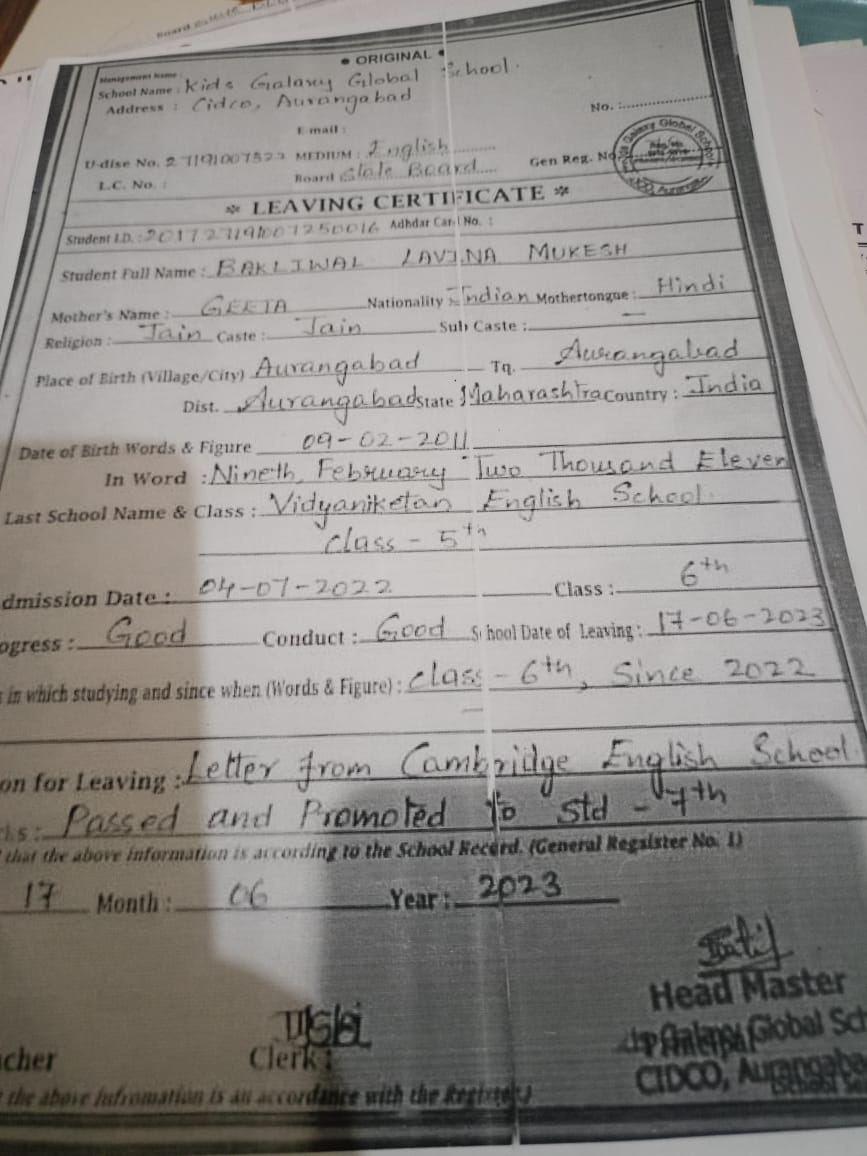 • ORIGINAL •
Management Name :
School Name : Kids Galaxy Global School.
Address : Cidco, Aurangabad
No. :
E-mail :
U-dise No. MEDIUM : English
Gen Reg. No
L.C. No. : Board State Board
LEAVING CERTIFICATE
Student I.D. : Adhdar Card No. :
Student Full Name : BAKLIWAL LAVINA MUKESH
Mother's Name : GEETA Nationality : Indian Mothertongue : Hindi
Religion : Jain Caste : Jain Sub Caste : —
Place of Birth (Village/City) Aurangabad Tq. Aurangabad
Dist. Aurangabad State Maharashtra Country : India
Date of Birth Words & Figure 09-02-2011
In Word : Nineth, February Two Thousand Eleven
Last School Name & Class : Vidyaniketan English School.
class - 5th
dmission Date : 04-07-2022 Class : 6th
ogress : Good Conduct : Good School Date of Leaving : 17-06-2023
in which studying and since when (Words & Figure) : class - 6th, Since 2022
on for Leaving : Letter from Cambridge English School
ks : Passed and Promoted to Std - 7th
that the above information is according to the School Record. (General Regsister No. 1)
17 Month : 06 Year : 2023
Head Master
Global Sch
acher Clerk :
CIDCO, Aurangaba
the above infromation is an accordance with the Register